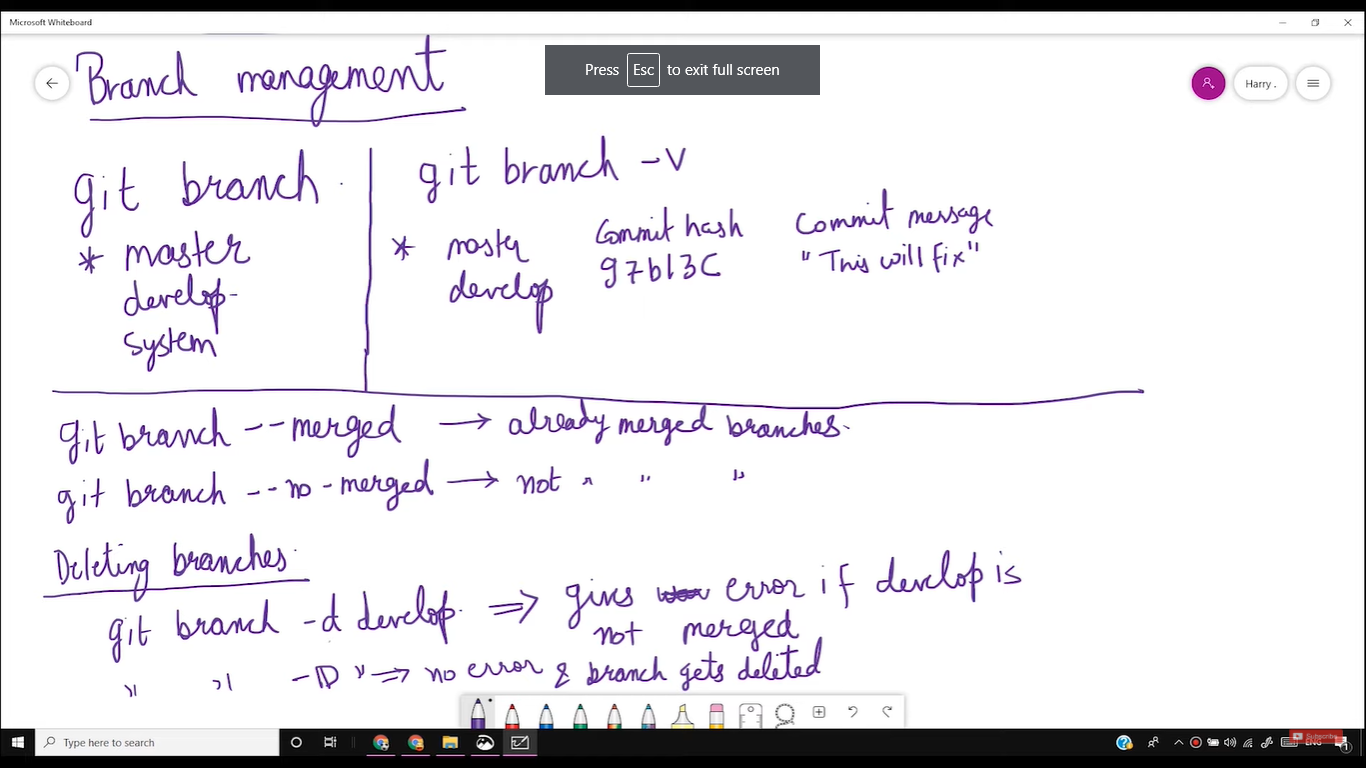 Microsoft Whiteboard
Press Esc to exit full screen
Harry .
Branch management
git branch
* master
develop
system
git branch -v
Commit hash Commit message
* master 97b13C "This will fix"
develop
git branch --merged → already merged branches.
git branch --no-merged → not " " "
Deleting branches.
git branch -d develop. ⇒ gives error if develop is
not merged
" " -D " ⇒ no error & branch gets deleted
Type here to search
Subscribe
ENG
1